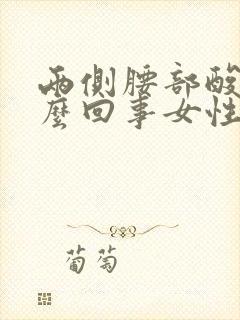 兩側腰部酸
麼回事女性
葡萄